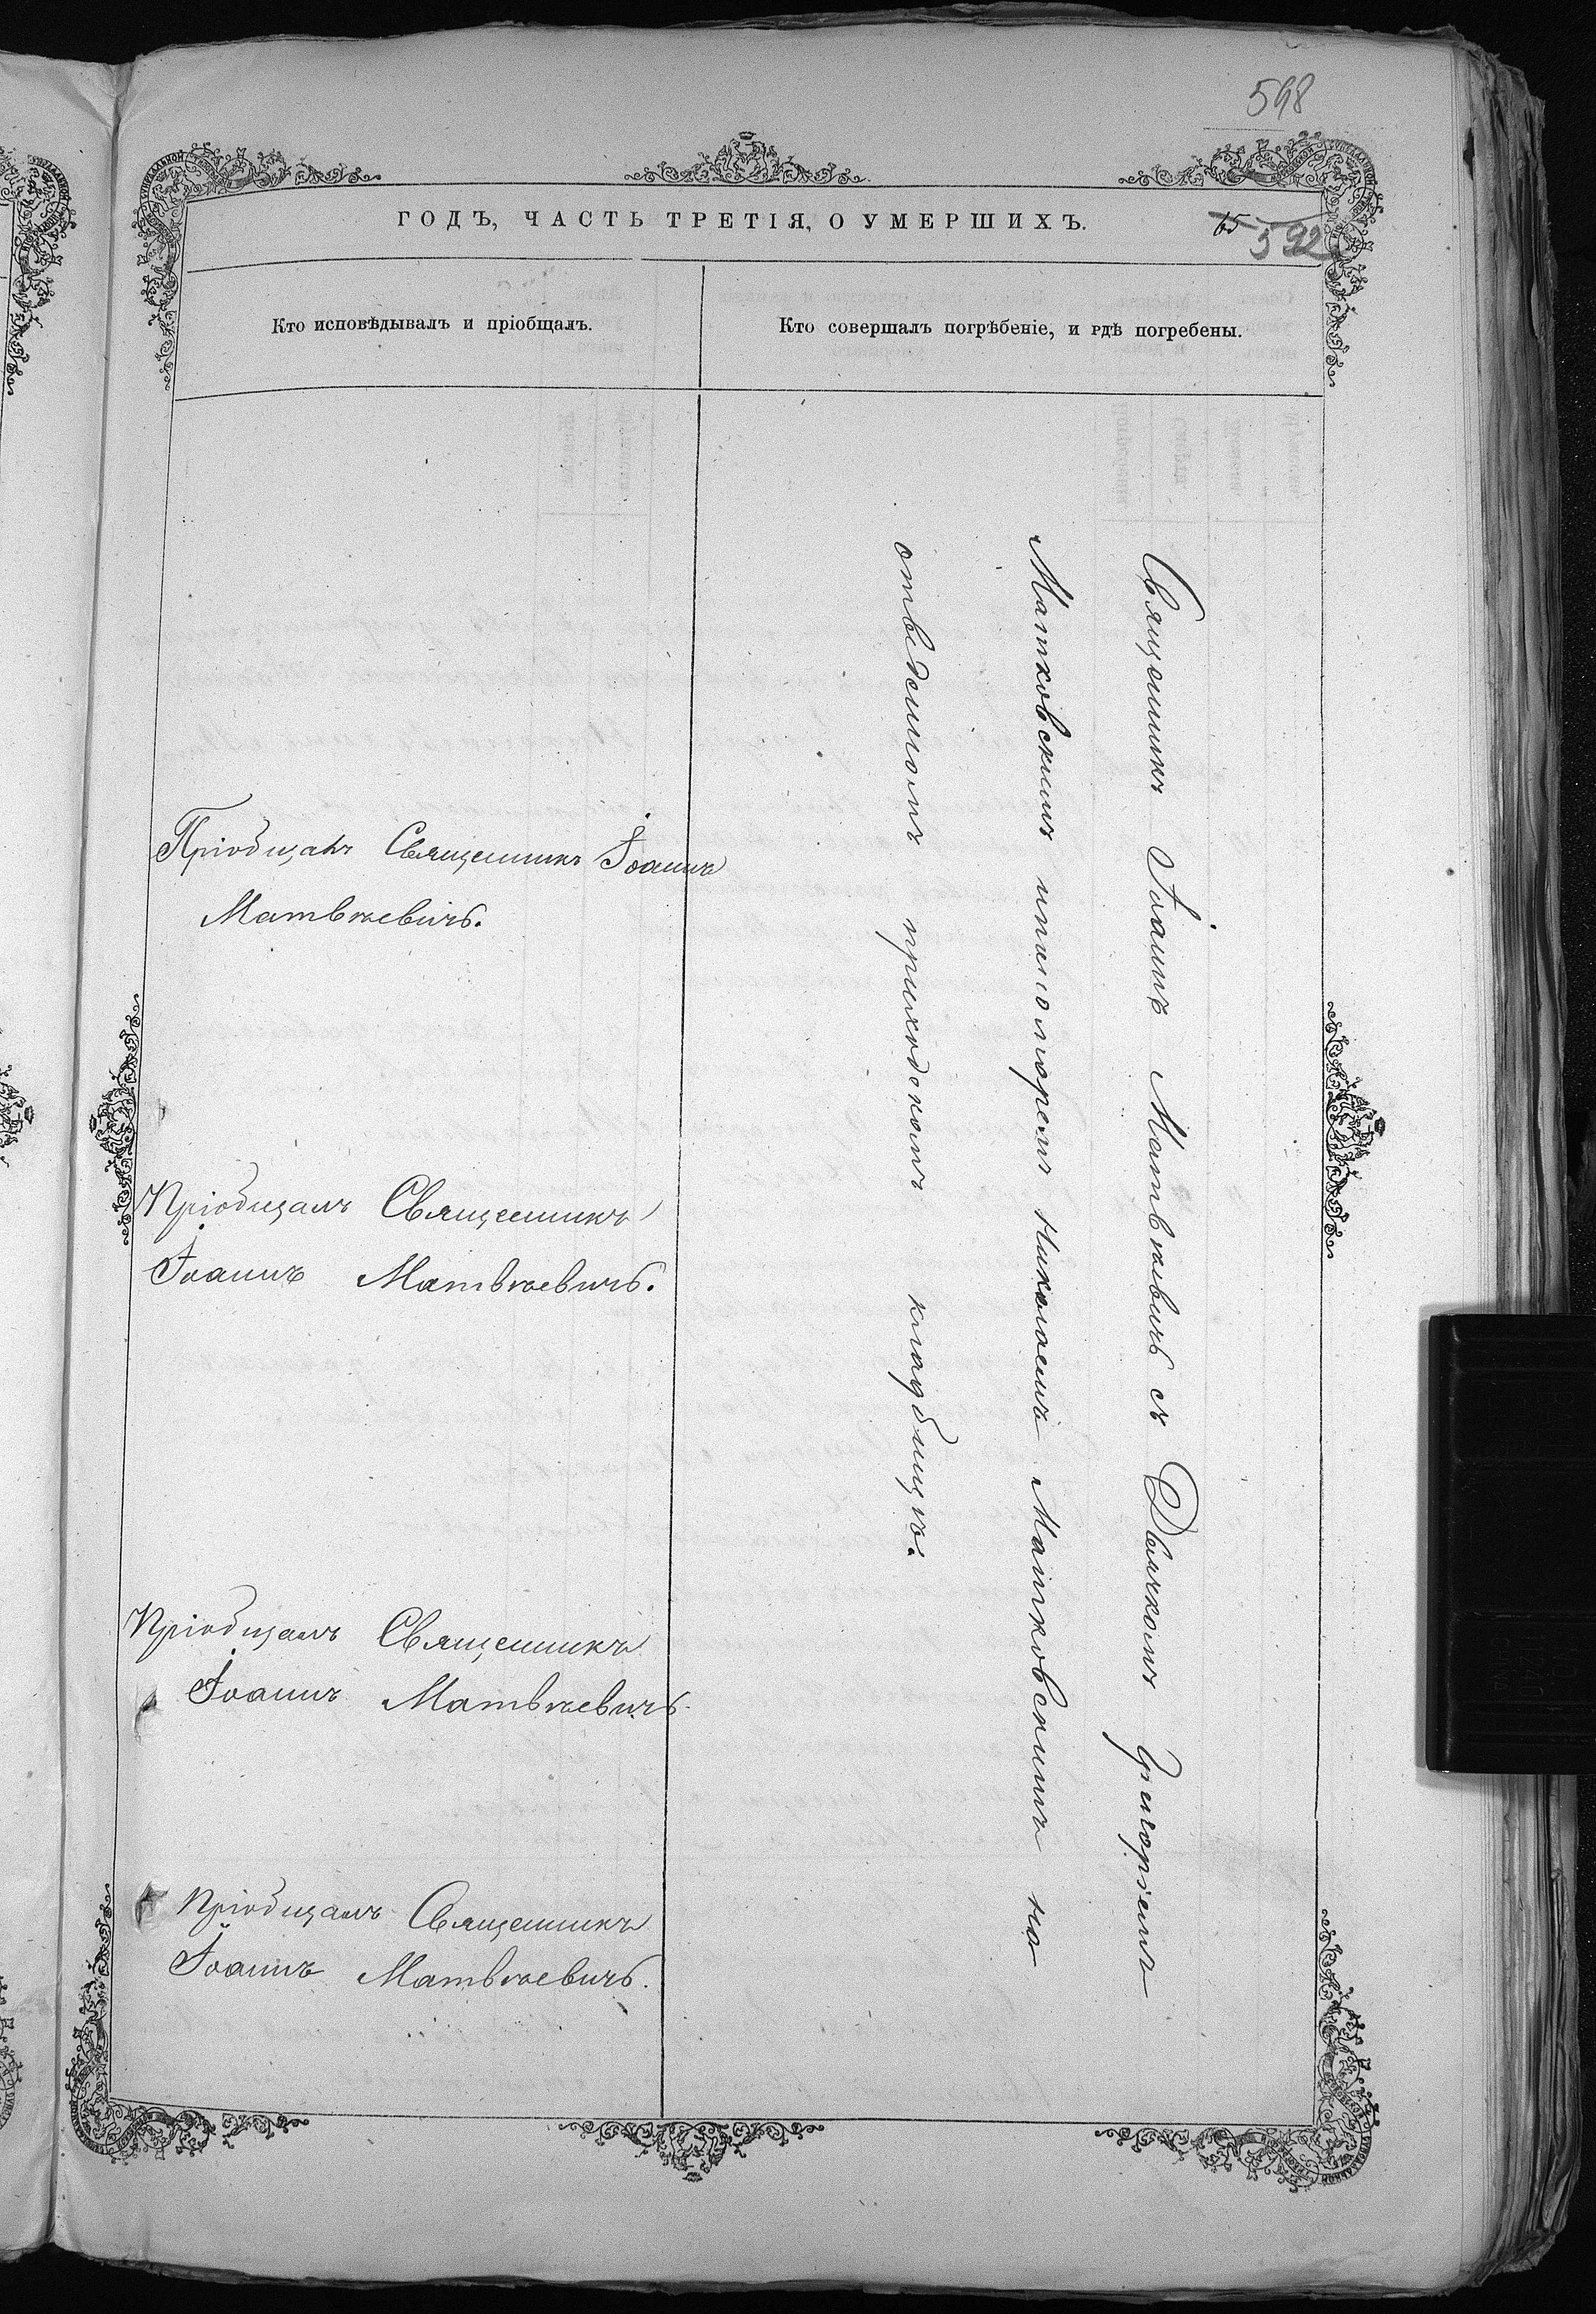 598
ГОДЪ, ЧАСТЬ ТРЕТІЯ, О УМЕРШИХЪ.
65
592
Кто исповѣдывалъ и пріобщалъ.
Кто совершалъ погрѣбеніе, и гдѣ погребены.
Пріобщалъ Священникъ Іоаннъ
Матвѣевичъ.
Пріобщалъ Священникъ
Іоаннъ Матвѣевичъ.
Пріобщалъ Священникъ
Іоаннъ Матвѣевичъ.
Пріобщалъ Священникъ
Іоаннъ Матвѣевичъ.
Священникъ Іоаннъ Матвѣевичъ съ Дьячкомъ Григоріемъ
Матковскимъ и Николаемъ Матковскимъ на
отведенномъ приходскомъ кладбищѣ.